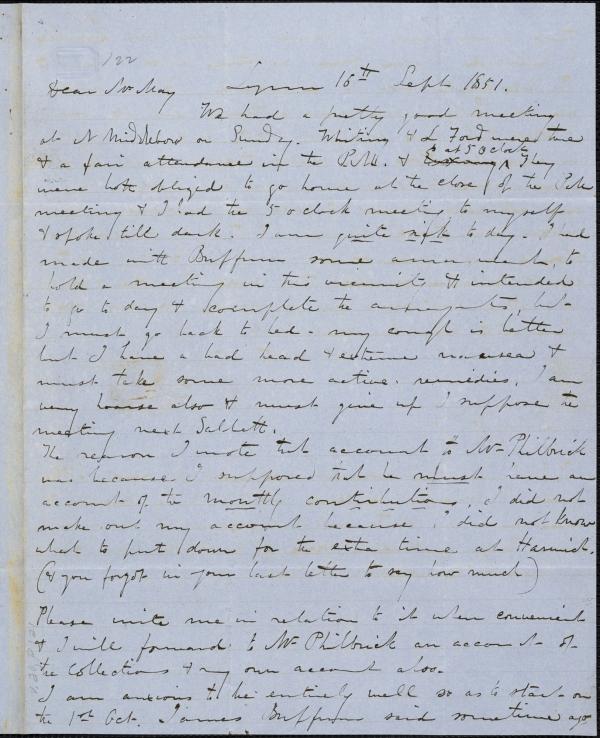 122
Dear Mr May Lynn 16th Sept 1851.
We had a pretty good meeting
at N Middleboro on Sunday. Whiting & L Ford were there
& a fair attendance in the P.M. & at 5 O clock
They
were both obliged to go home at the close of the P.M.
meeting & I had the 5 o clock meeting to myself
& spoke till dark. I am quite sick to day. I had
made with Buffum some arrangements, to
hold a meeting in this vicinity & intended
to go to day & complete the arrangements, but
I must go back to bed - my cough is better
but I have a bad head & extreme nausea &
must take some more active remedies. I am
very hoarse also & must give up I suppose the
meeting next Sabbath.
The reason I wrote that account to Mr Philbrick
was because I supposed that he must have an
account of the monthly contributions, I did not
make out my account because I did not know
what to put down for the extra time at Harwich.
(& you forgot in your last letter to say how much)
Please write me in relation to it when convenient
& I will forward to Mr Philbrick an account of
the Collections & my own account also.
I am anxious to be entirely well so as to start on
the 1st Oct. James Buffum said sometime ago